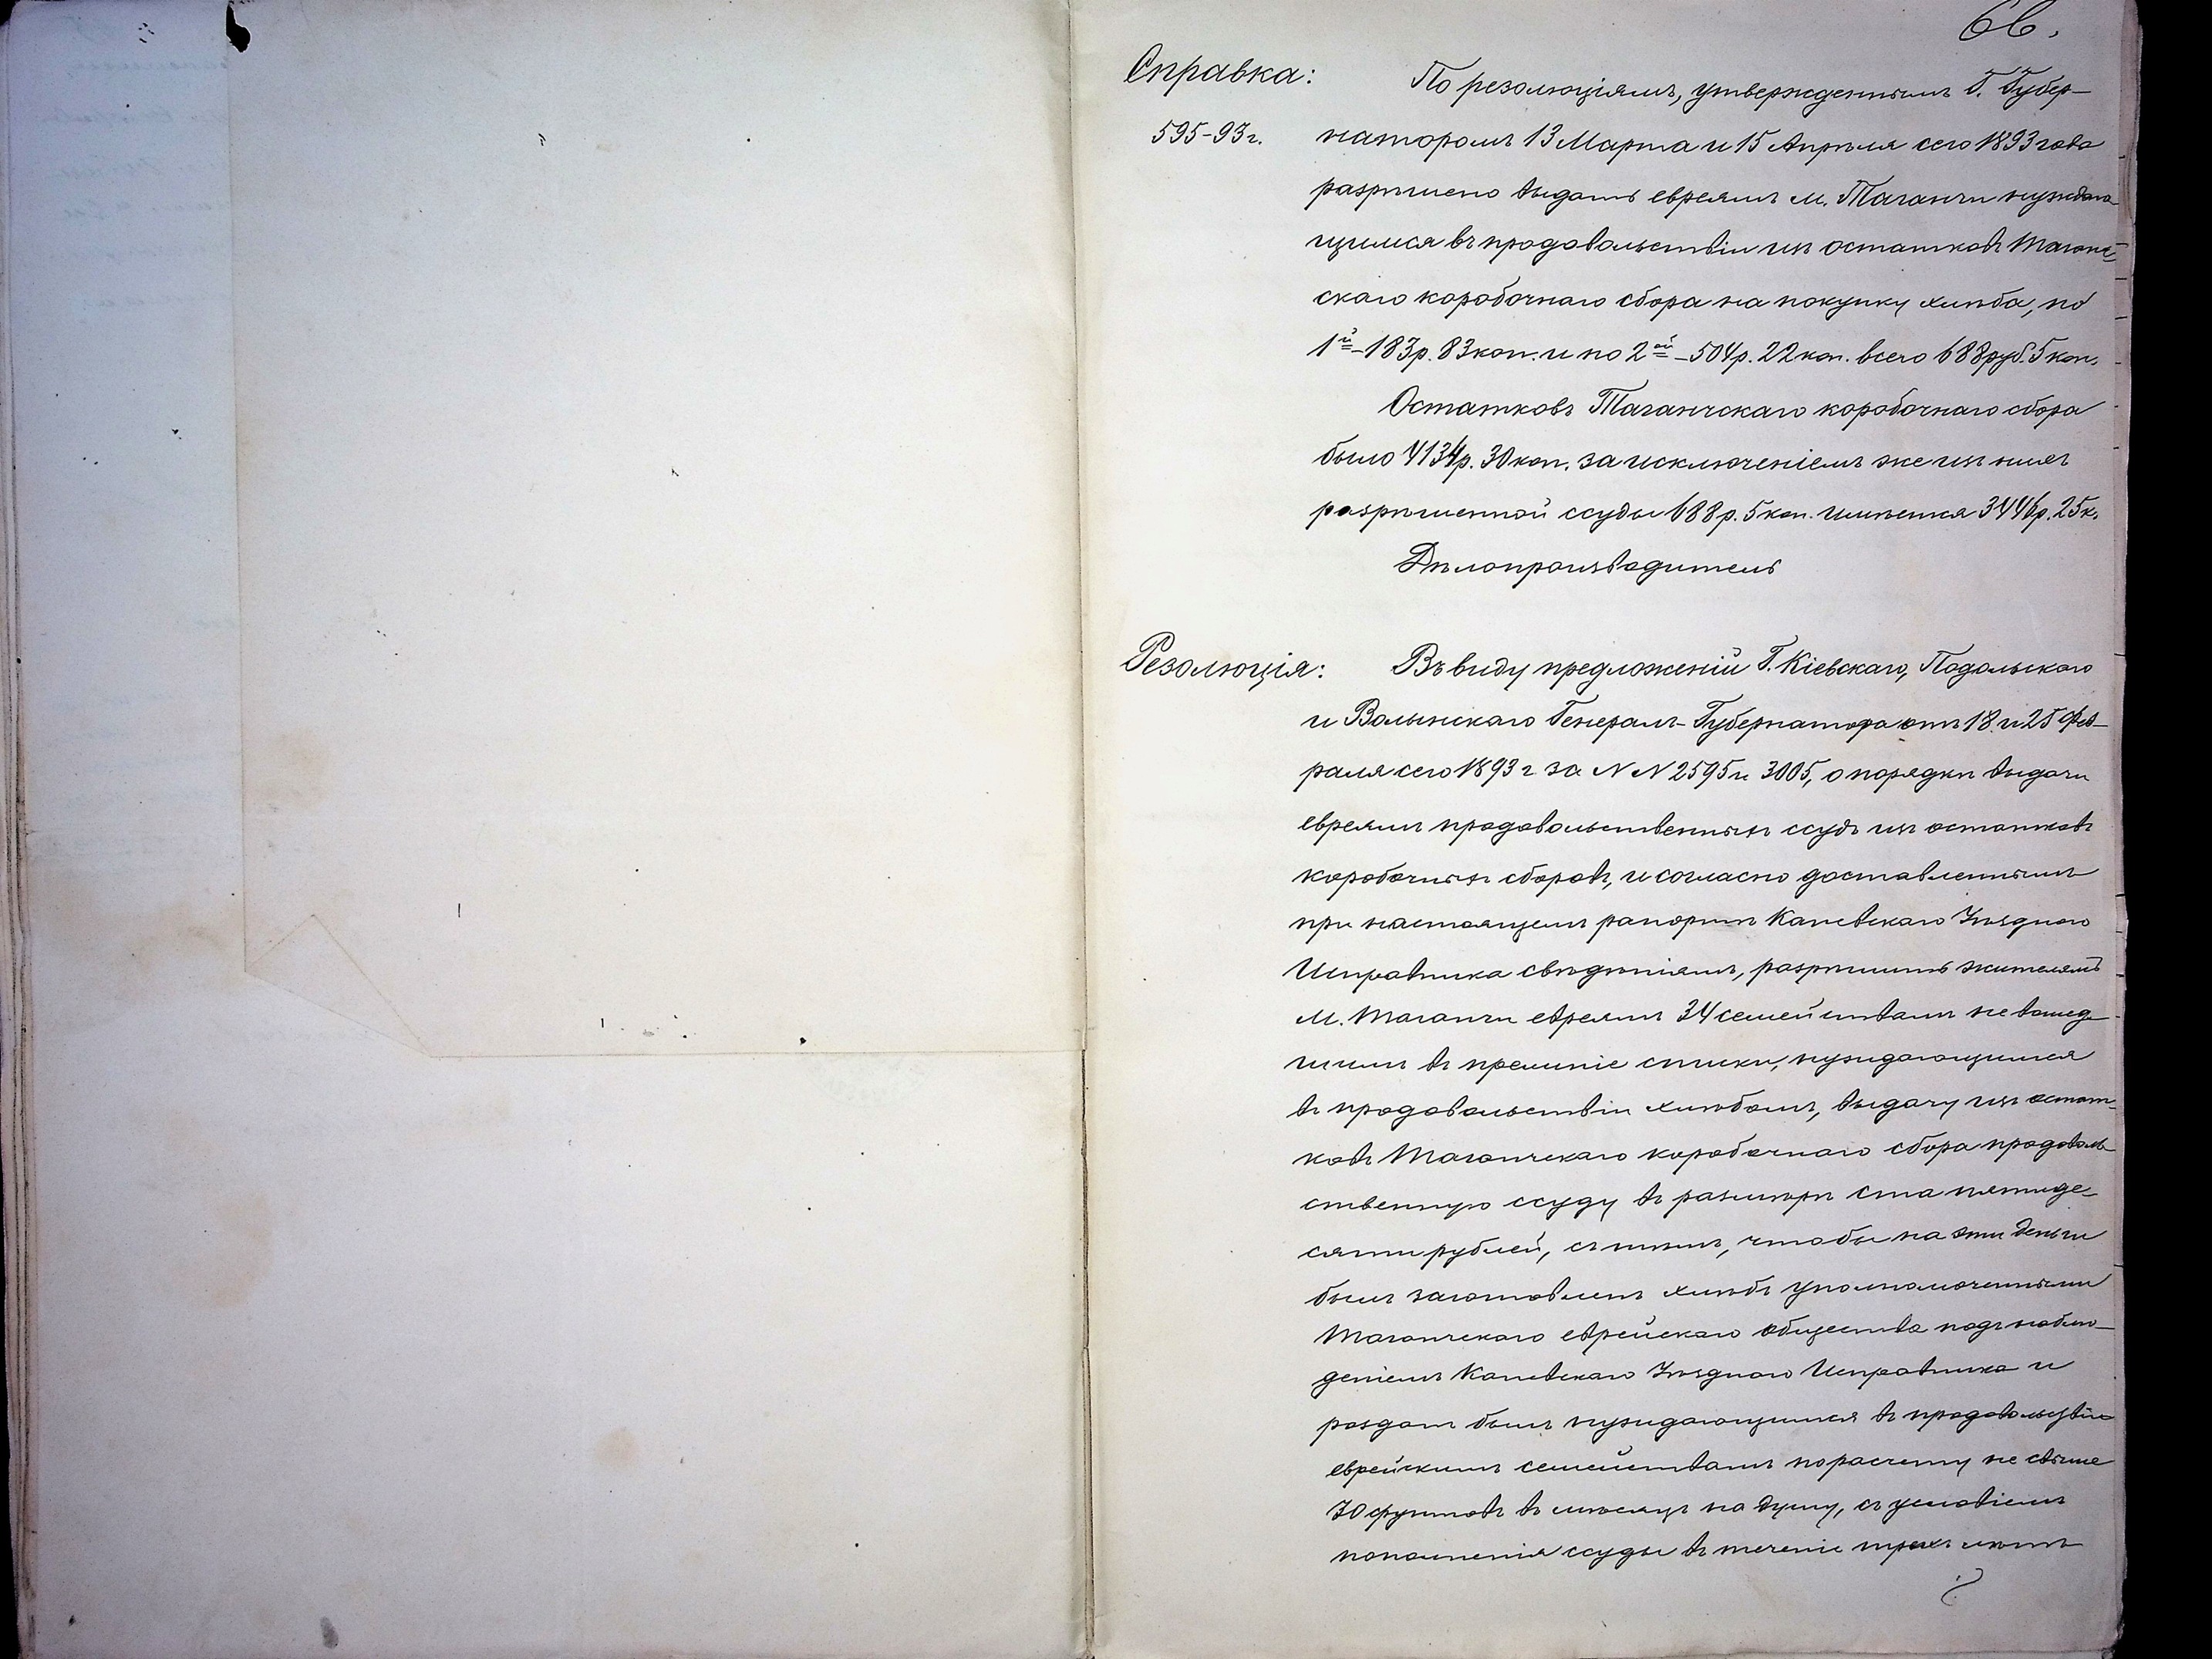 66.
Справка:
595-93 г.
По резолюціямъ, утвержденнымъ Г. Губер-
наторомъ 13 Марта и 15 Апрѣля сего 1893 года
разрѣшено выдать евреямъ м. Таганчи нуждаю-
щимся въ продовольствіи изъ остатковъ Таганч-
скаго коробочнаго сбора на покупку хлѣба, по
1й - 183 р. 83 коп. и по 2ой - 504 р. 22 коп. всего 688 руб. 5 коп.
Остатковъ Таганчскаго коробочнаго сбора
было 4134 р. 30 коп. за исключеніемъ же изъ нихъ
разрѣшенной ссуды 688 р. 5 коп. имѣется 3446 р. 25 к.
Дѣлопроизводитель
Резолюція:
Въ виду предложеній Г. Кіевскаго, Подольскаго
и Волынскаго Генералъ-Губернатора отъ 18 и 25 Фев-
раля сего 1893 г за № № 2595 и 3005, о порядкѣ выдачи
евреямъ продовольственныхъ ссудъ изъ остатковъ
коробочныхъ сборовъ, и согласно доставленнымъ
при настоящемъ рапортѣ Каневскаго Уѣзднаго
Исправника свѣдѣніямъ, разрѣшить жителямъ
м. Таганчи евреямъ 34 семействамъ не вошед-
шимъ въ прежніе списки, нуждающимся
въ продовольствіи хлѣбомъ, выдачу изъ остат-
ковъ Таганчскаго коробочнаго сбора продоволь-
ственную ссуду въ размѣрѣ ста пятиде-
сяти рублей, съ тѣмъ, чтобы на эти деньги
былъ заготовленъ хлѣбъ уполномоченными
Таганчскаго еврейскаго общества подъ наблю-
деніемъ Каневскаго Уѣзднаго Исправника и
розданъ былъ нуждающимся въ продовольствіи
еврейскимъ семействамъ по расчету не свыше
30 фунтовъ въ мѣсяцъ на душу, съ условіемъ
пополненія ссуды въ теченіе трехъ лѣтъ